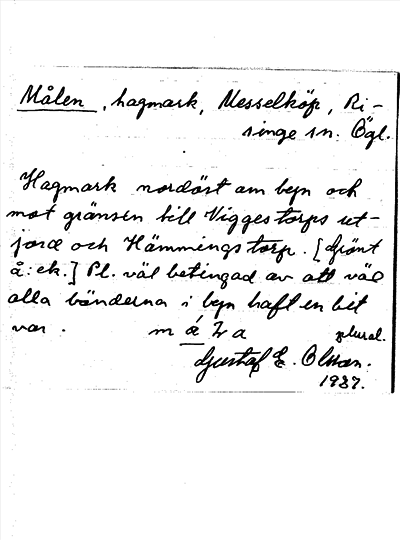 Målen, hagmark, Messelköp, Ri-
singe sn. Ögl.
Hagmark nordöst om byn och
mot gränsen till Viggestorps ut-
jord och Hämmingstorp. [Grönt
å: ek.] Pl. väl betingad av att väl
alla bönderna i byn haft en bit
var. plural.
Gustaf E. Olsson.
1937.